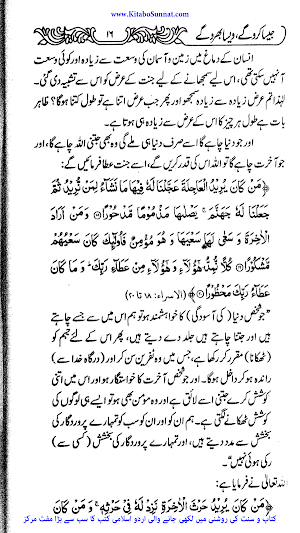 www.KitaboSunnat.com
جیسا کرو گے، ویسا بھرو گے
۱۶
انسان کے دماغ میں زمین و آسمان کی وسعت سے زیادہ اور کوئی وسعت
آ نہیں سکتی تھی، اس لیے سمجھانے کے لیے جنت کے عرض کو اس سے تشبیہ دی گئی۔
لہٰذا تم عرض سے زیادہ سمجھو اور پھر جب عرض اتنا ہے تو طول کتنا ہوگا؟ ظاہر
بات ہے طول ہر چیز کا اس کے عرض سے زیادہ ہی ہوتا ہے۔
اور جو دنیا چاہے گا اسے صرف دنیا ہی ملے گی وہ بھی جتنی اللہ چاہے گا، اور
جو آخرت چاہے گا تو اللہ اس کی قدر کریں گے، اسے جنت عطا فرمائیں گے:
﴿مَنْ كَانَ يُرِيدُ الْعَاجِلَةَ عَجَّلْنَا لَهُ فِيهَا مَا نَشَاءُ لِمَنْ نُرِيدُ ثُمَّ
جَعَلْنَا لَهُ جَهَنَّمَ ۚ يَصْلٰىهَا مَذْمُومًا مَدْحُورًا ۝ وَمَنْ اَرَادَ
الْاٰخِرَةَ وَ سَعٰى لَهَا سَعْيَهَا وَ هُوَ مُؤْمِنٌ فَاُولٰٓئِكَ كَانَ سَعْيُهُمْ
مَشْكُورًا ۝ كُلًّا نُمِدُّ هٰٓؤُلَآءِ وَ هٰٓؤُلَآءِ مِنْ عَطَآءِ رَبِّكَ ۚ وَ مَا كَانَ
عَطَآءُ رَبِّكَ مَحْظُورًا ۝﴾ (الاسراء: ۱۸ تا ۲۰)
"جو شخص دنیا (کی آسودگی) کا خواہشمند ہو تو ہم اس میں سے جسے چاہتے
ہیں اور جتنا چاہتے ہیں جلد دے دیتے ہیں، پھر اس کے لئے جہنم کو
(ٹھکانا) مقرر کر رکھا ہے، جس میں وہ نفرین سن کر اور (درگاہ خدا سے)
راندہ ہو کر داخل ہوگا۔ اور جو شخص آخرت کا خواستگار ہو اور اس میں اتنی
کوشش کرے جتنی اسے لائق ہے اور وہ مؤمن بھی ہو تو ایسے ہی لوگوں کی
کوشش ٹھکانے لگتی ہے۔ ہم ان کو اور ان کو سب کو تمہارے پروردگار کی
بخشش سے مدد دیتے ہیں، اور تمہارے پروردگار کی بخشش (کسی سے)
رکی ہوئی نہیں"۔
اللہ تعالیٰ نے فرمایا ہے:
﴿مَنْ كَانَ يُرِيدُ حَرْثَ الْاٰخِرَةِ نَزِدْ لَهُ فِى حَرْثِهٖ ۚ وَ مَنْ كَانَ
کتاب و سنت کی روشنی میں لکھی جانے والی اردو اسلامی کتب کا سب سے بڑا مفت مرکز